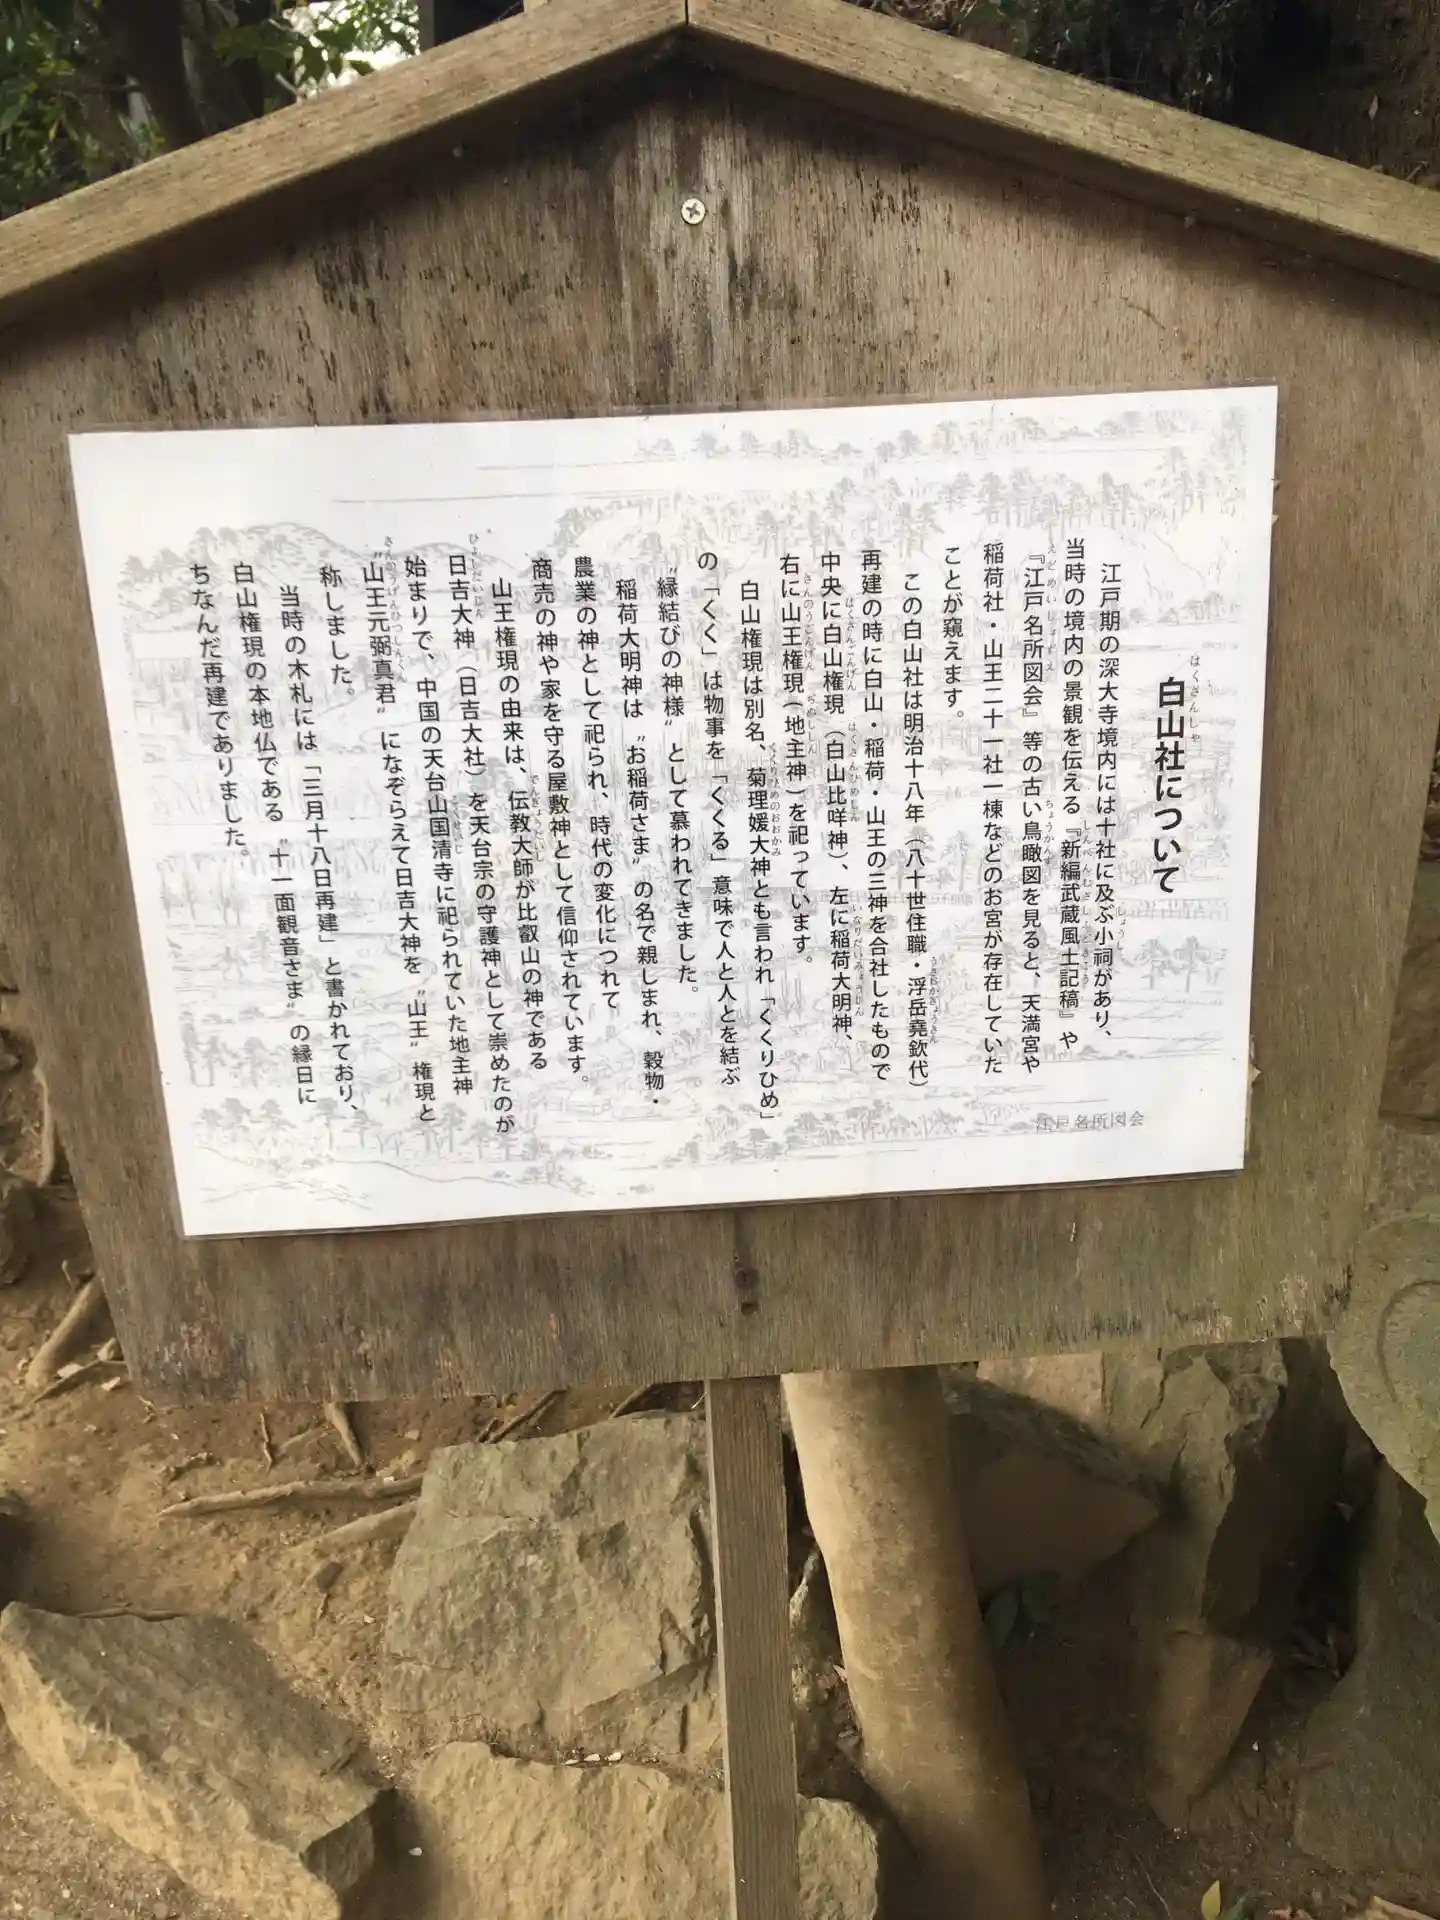 白山社について
江戸期の深大寺境内には十社に及ぶ小祠があり、
当時の境内の景観を伝える『新編武蔵風土記稿』や
『江戸名所図会』等の古い鳥瞰図を見ると、天満宮や
稲荷社・山王二十一社一棟などのお宮が存在していた
ことが窺えます。
この白山社は明治十八年（八十世住職・浮岳堯欽代）
再建の時に白山・稲荷・山王の三神を合社したもので
中央に白山権現（白山比咩神）、左に稲荷大明神、
右に山王権現（地主神）を祀っています。
白山権現は別名、菊理媛大神とも言われ「くくりひめ」
の「くく」は物事を「くくる」意味で人と人とを結ぶ
〝縁結びの神様〟として慕われてきました。
稲荷大明神は〝お稲荷さま〟の名で親しまれ、穀物・
農業の神として祀られ、時代の変化につれて
商売の神や家を守る屋敷神として信仰されています。
山王権現の由来は、伝教大師が比叡山の神である
日吉大神（日吉大社）を天台宗の守護神として崇めたのが
始まりで、中国の天台山国清寺に祀られていた地主神
〝山王元弼真君〟になぞらえて日吉大神を〝山王〟権現と
称しました。
当時の木札には「三月十八日再建」と書かれており、
白山権現の本地仏である〝十一面観音さま〟の縁日に
ちなんだ再建でありました。
江戸名所図会